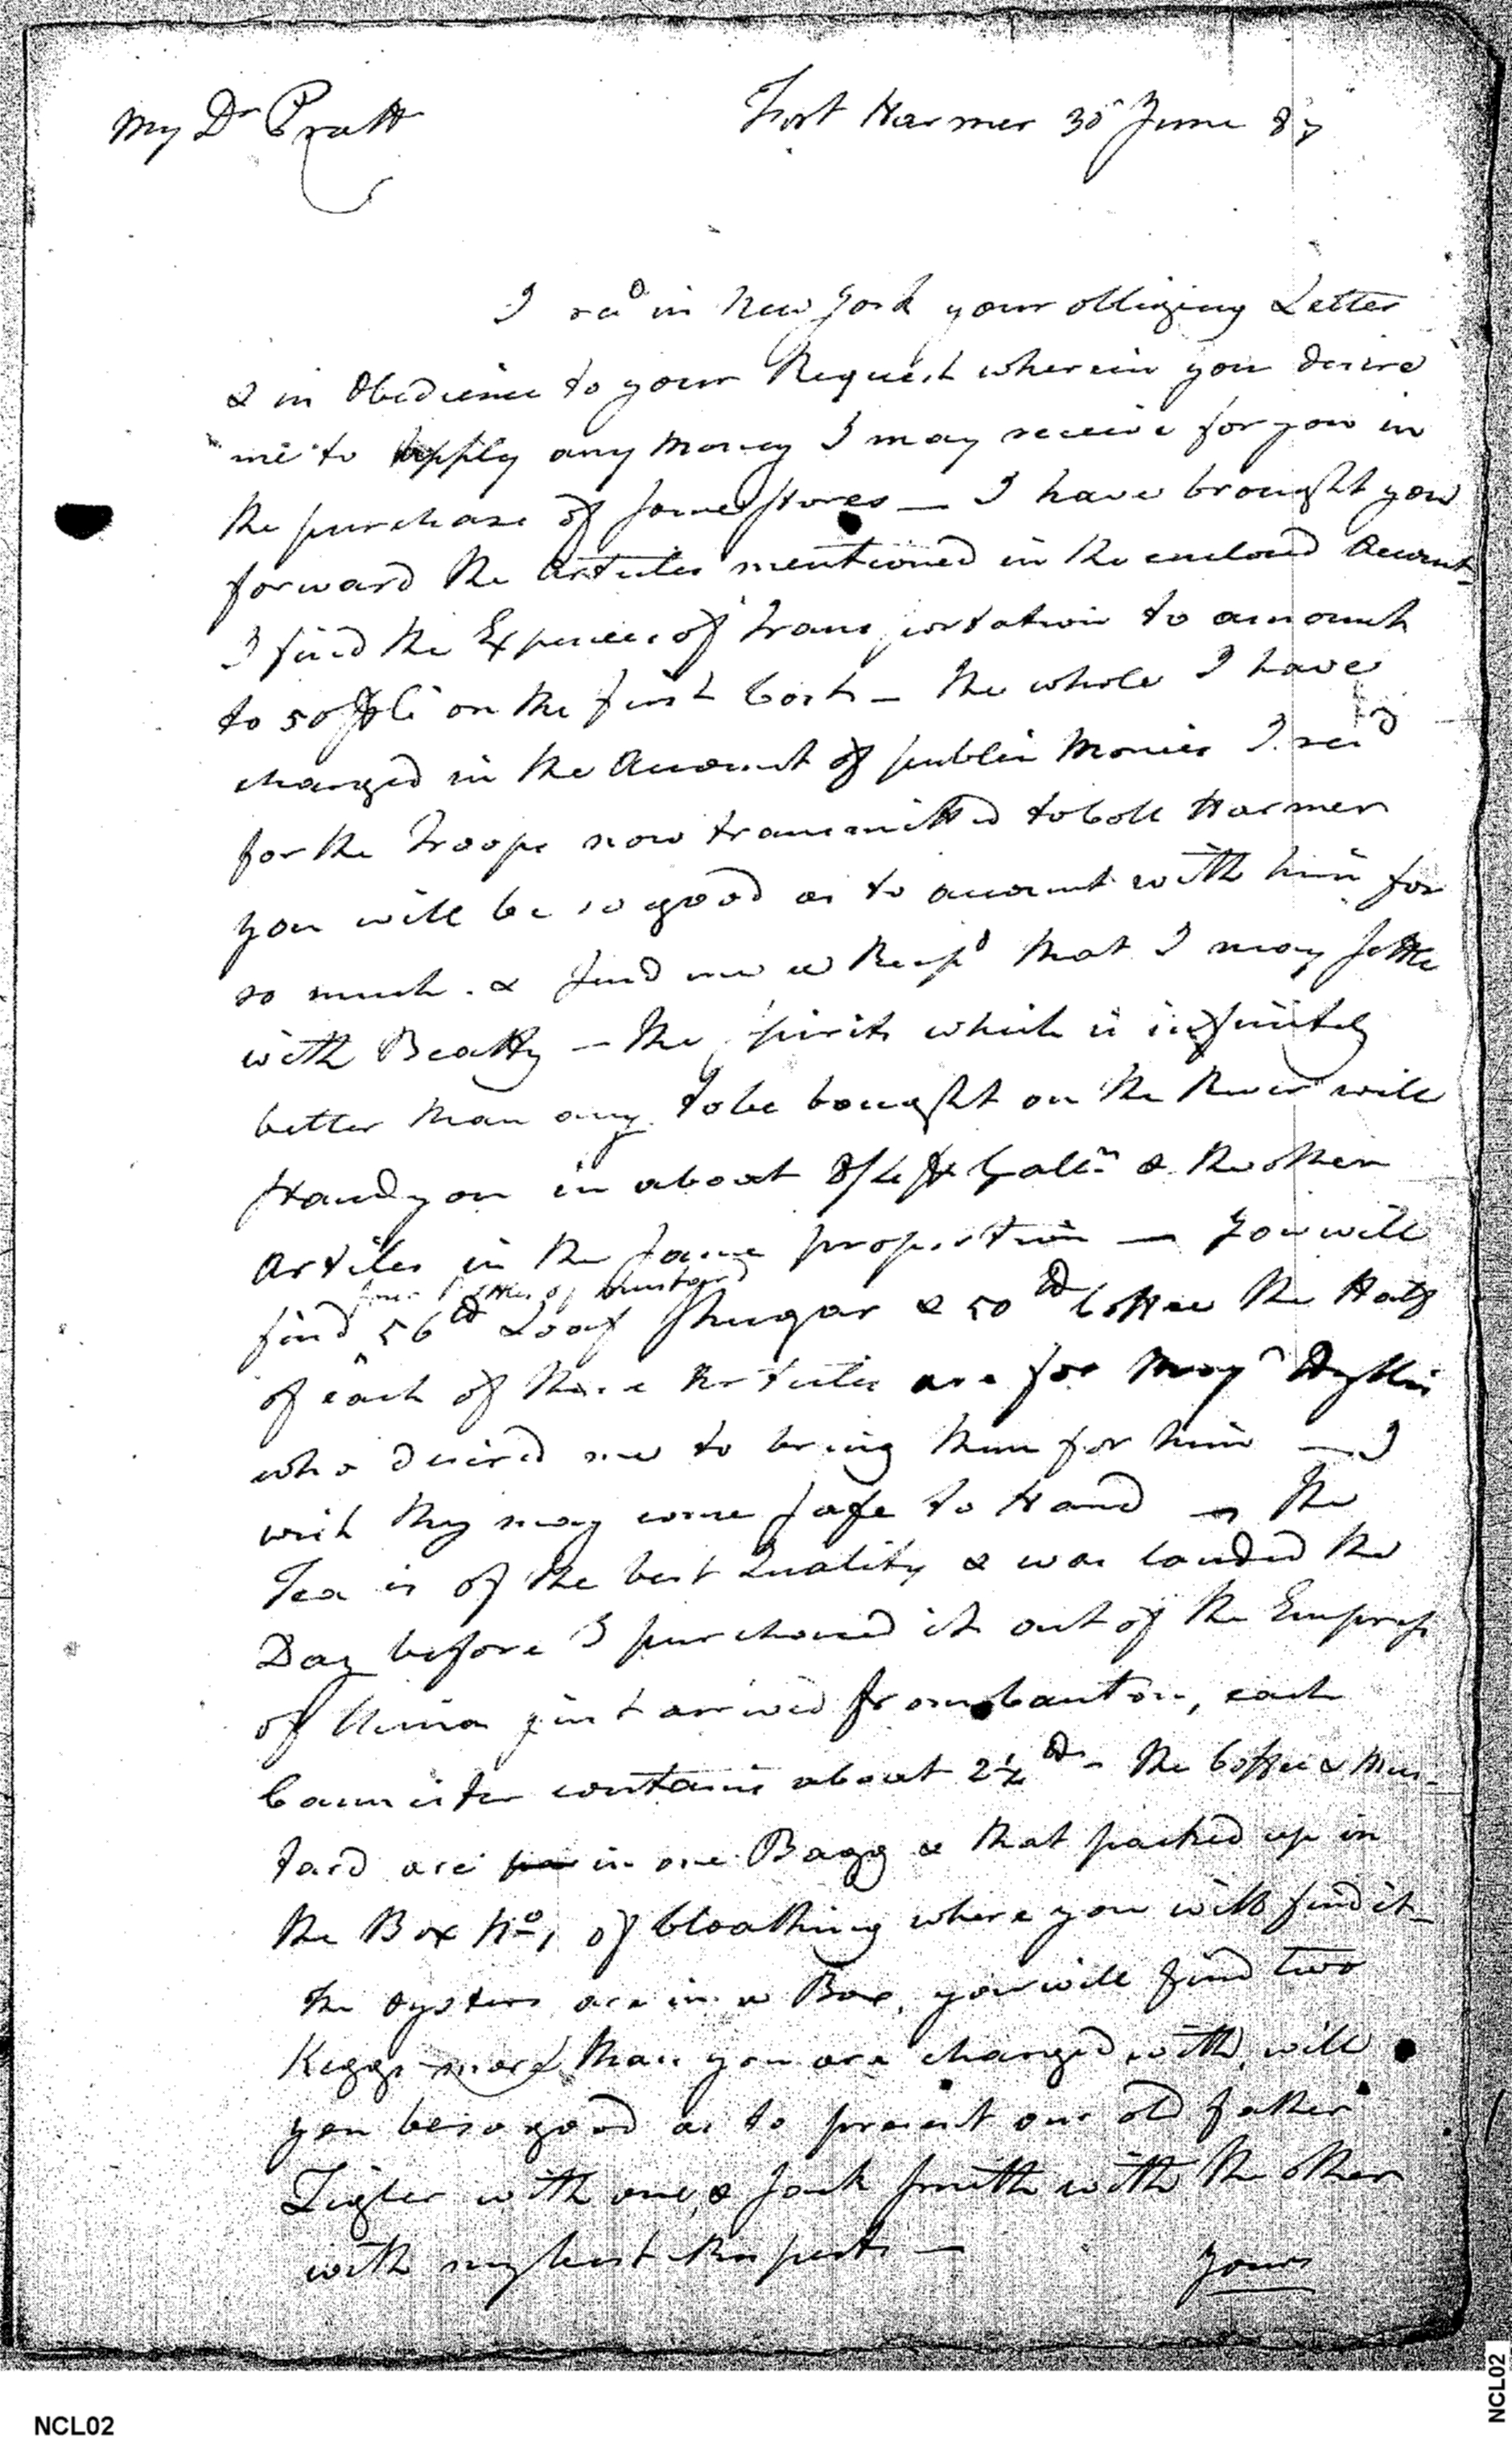 My Dr Pratt
Fort Harmer 30 June 87
I recd in New York your obliging Letter
& in Obedience to your Request wherein you desire
me to apply any Money I may receive for you in
the purchase of some Stores — I have brought you
forward the Articles mentioned in the enclosed Account
I find the Expences of transportation to amount
to 50 on the first Cost — the whole I have
charged in the Account of public Monies I recd
for the Troops now transmitted to Coll Harmer
you will be so good as to account with him for
so much. & send me a that I may settle
with Beatty — the spirits which is infinitely
better than any to be bought on the River will
stand you in about 8/4 Galln & the other
Artiles in the same proportion — You will
four Bottles of Mustard
find 56 lb Loaf Shugar & 50 lb Coffee the Half
of each of these Articles are for Majr
who desired me to bring them for him — I
wish they may come safe to Hand — The
Tea is of the best Quality & was landed the
Day before I purchased it out of the Empress
of China just arrived from Canton, each
Cannister contains about 2½ lb - the Coffee & Mus-
tard are in one Bagg & that packed up in
the Box No 1 of Cloathing where you will find it
the Oysters are in a Box, you will find two
Keggs more than you are charged with, will
you be so good as to present our old father
Zigler with one, & Jack Smith with the other
with my best Respects —
Yours
NCL02
NCL02